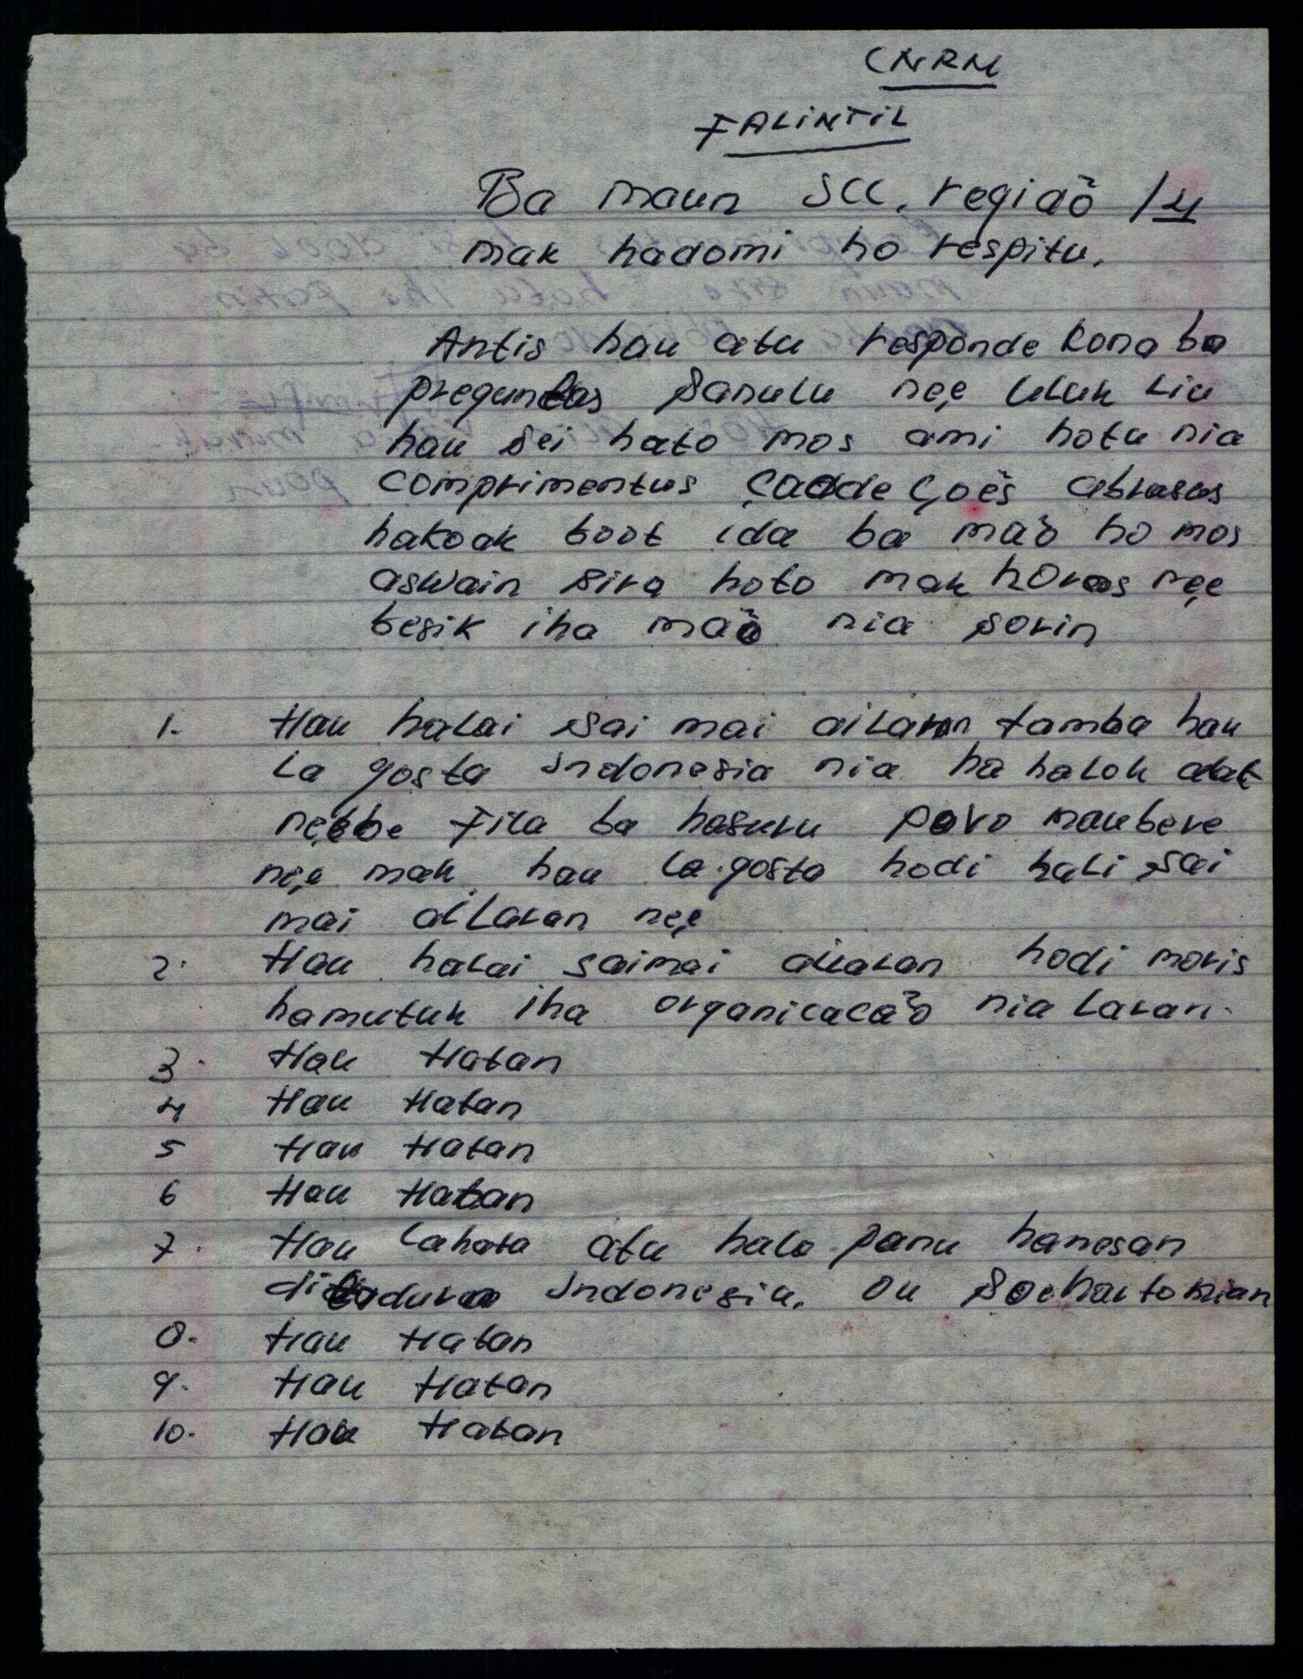 CNRM
FALiNTiL
Ba maun SCC. região /4
mak hadomi ho respitu.
Antis hau atu responde kona ba
preguntas sanulu neȩ uluk liu
hau sei hato mos ami hotu nia
comprimentus çaode çoẽs abrasus
hakoak boot ida ba maõ ho mos
aswain sira hoto mak horas neȩ
besik iha maõ nia sorin
1. Hau halai sai mai ailaran tamba hau
la gosta indonesia nia ha halok aat
neȩbe fila ba hasuru povo maubere
neȩ mak hau la gosta hodi hali sai
mai ailaran neȩ
2. Hau halai saimai ailaran hodi moris
hamutuk iha organicacaõ nia laran.
3. Hau Hatan
4 Hau Hatan
5 Hau Hatan
6 Hau Hatan
7. Hau lahata atu halo panu hanesan
ditadura indonesia. ou Soehartonian
8. Hau Hatan
9. Hau Hatan
10. Hau Hatan